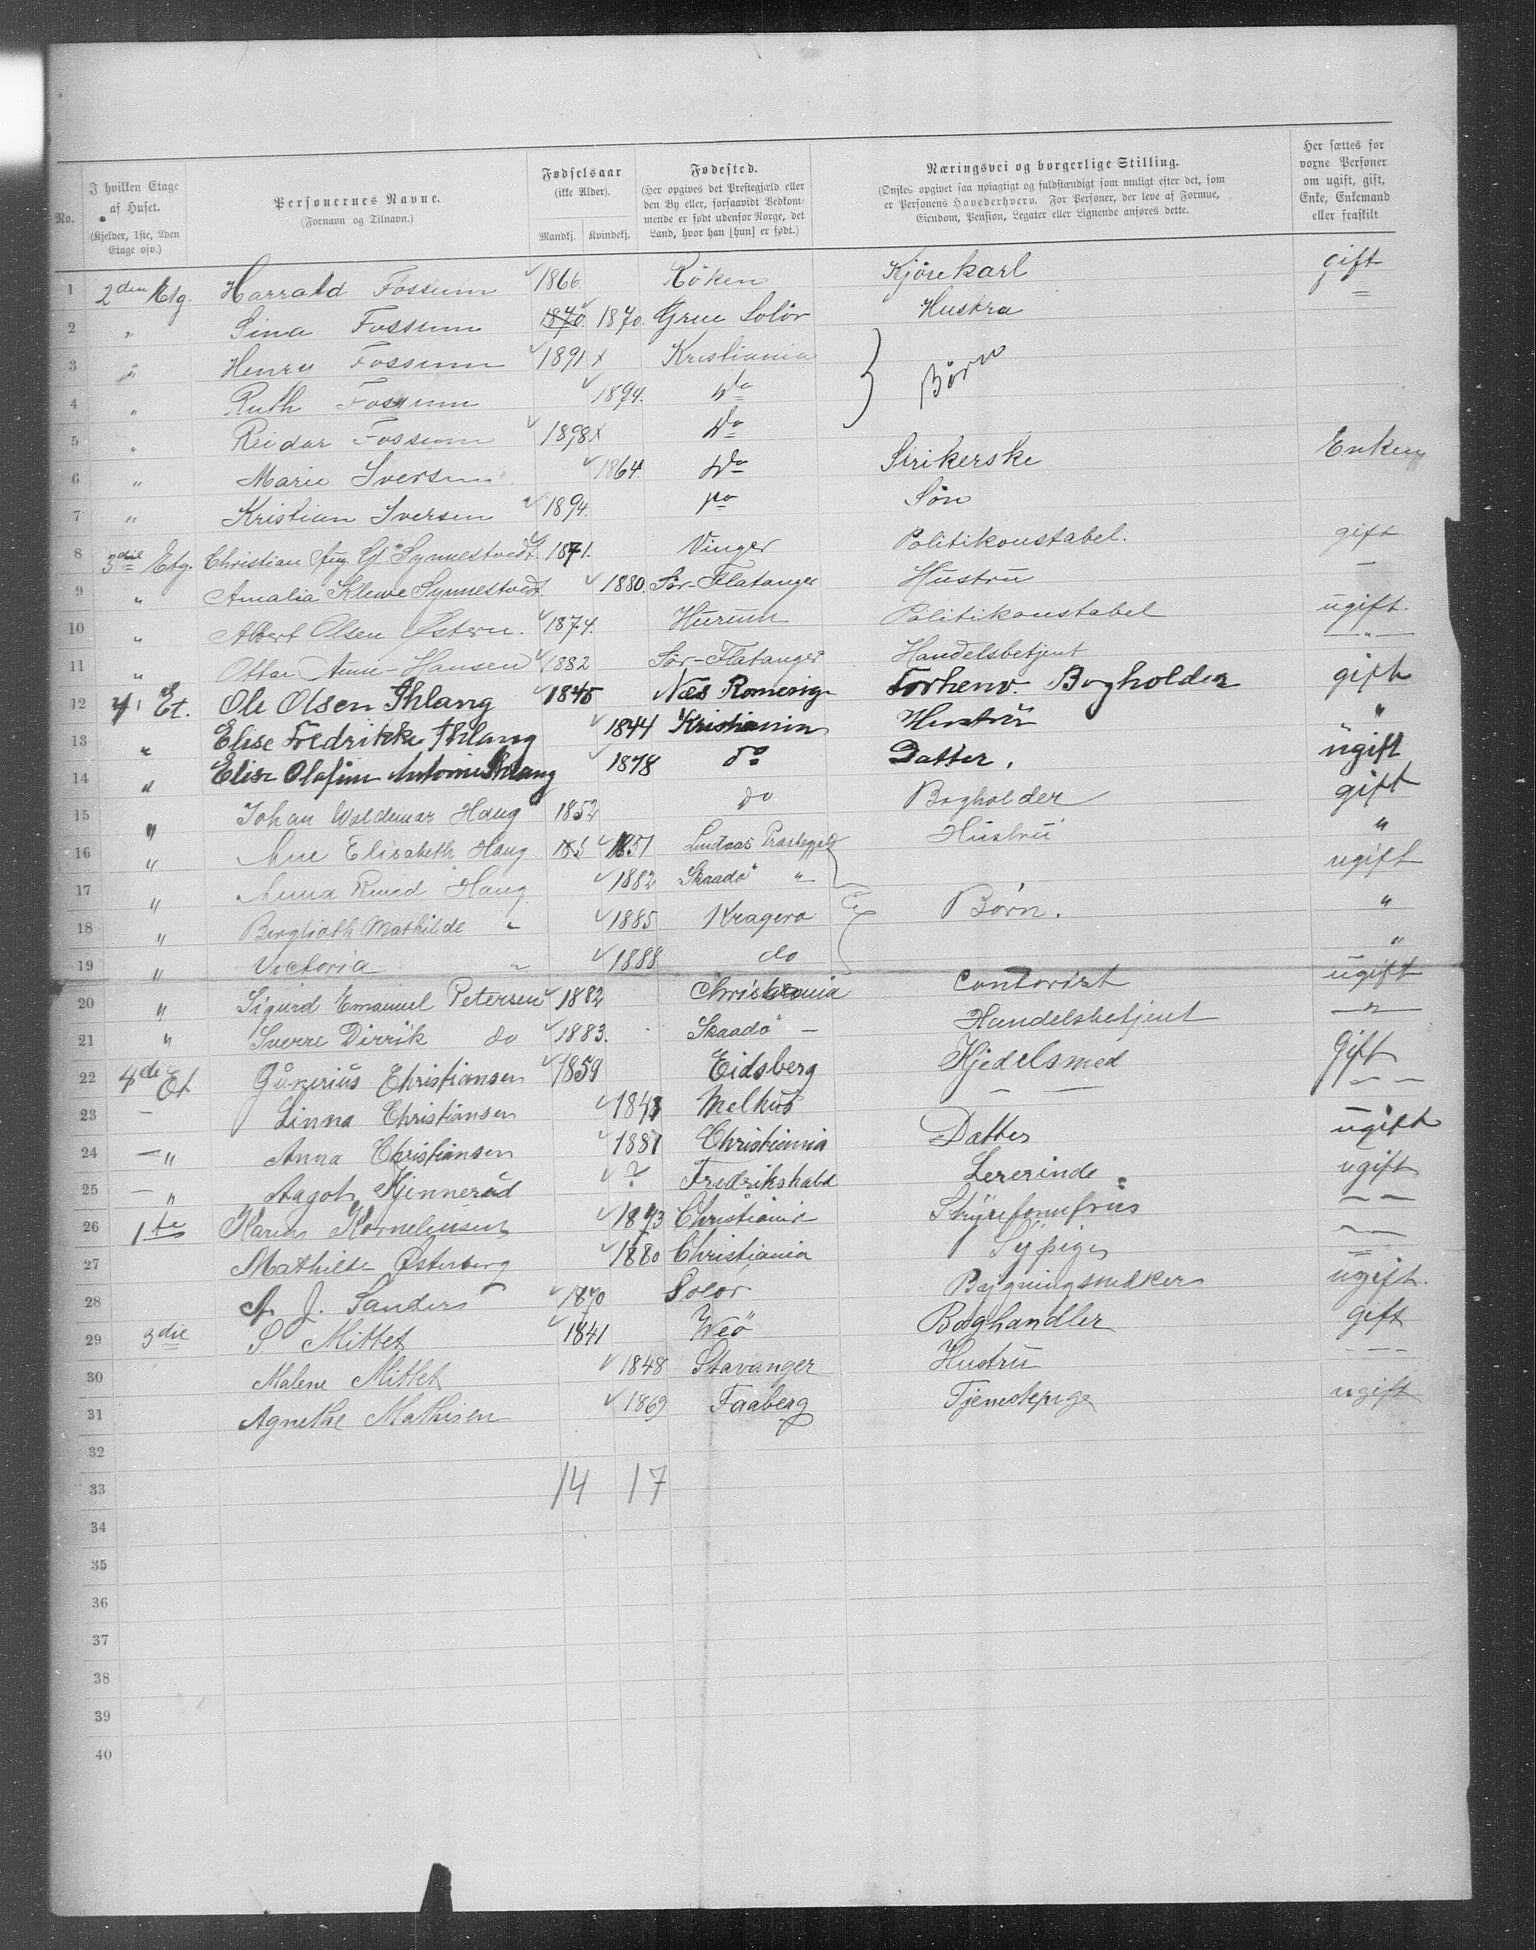 No.
I hvilken Etage af Huset. (Kjelder, 1ste, 2den Etage osv.)
Personernes Navne. (Fornavn og Tilnavn.)
Fødselsaar (ikke Alder). Mandkj. Kvindekj.
Fødested. (Her opgives det Prestegjæld eller den By eller, forsaavidt Vedkommende er født udenfor Norge, det Land, hvor han [hun] er født.)
Næringsvei og borgerlige Stilling. (Ønskes opgivet saa nøiagtigt og fuldstændigt som muligt efter det, som er Personens Hovederhverv. For Personer, der leve af Formue, Eiendom, Pension, Legater eller Lignende anføres dette.)
Her sættes for voxne Personer om ugift, gift, Enke, Enkemand eller fraskilt
1 2den Etg. Harrald Fossum 1866. Røken Kjørekarl gift
2 " Sina Fossum 1870. 1870. Grue Solør Hustru "
3 " Henry Fossum 1891 x Kristiania Børn
4 " Ruth Fossum 1894. do
5 " Reidar Fossum 1898 x do
6 " Marie Iversen 1864. do Strikerske Enken
7 " Kristian Iversen 1894. do Søn
8 3die Etg. Christian Aug. Synnestvedt 1871. Vinger Politikonstabel. gift
9 " Amalia Synnestvedt 1880. Sør-Flatanger Hustru —
10 " Albert Olsen Østern. 1874. Hurum Politikonstabel ugift.
11 " Ottar Hansen 1882 Sør-Flatanger Handelsbetjent — " —
12 4 Et. Ole Olsen Ihlang 1845 Næs Romerige Forhenv. Bogholder gift
13 " Elise Fredrikke Ihlang 1844 Kristiania Hustru "
14 " Elise Olafine Antonie Ihlang 1878 do Datter. ugift
15 " Johan Waldemar Haug 1852 do Bogholder gift
16 " Ane Elisabeth Haug 185 1851 Lindaas Præstegjeld Hustru "
17 " Anna Haug 1882 Skaadø " Børn. ugift
18 " Berglioth Mathilde " 1885 Kragerø "
19 " Victoria " 1888 do "
20 " Sigurd Emanuel Petersen 1882 Christiania Contorist ugift
21 " Sverre Dirrik do 1883. Skaadø — Handelsbetjent — " —
22 4de Et Gunerius Christiansen 1859 Eidsberg Kjedelsmed Gift
23 — Linna Christiansen Melhus — — — —
24 — " Anna Christiansen 1887 Christiania Datter ugift
25 — " Aagot Kjennerud ? Fredrikshald Lererinde. ugift
26 1te Karen Korneliussen 1873 Christiania — —
27 Mathilde Østerberg 1880 Christiania Sypige
28 A. J. Sanders 1870 Solør Bygningssnekker ugift.
29 3die S. Mittet 1841 Weø Boghandler gift
30 Malene Mittet 1848 Stavanger Hustru - - -
31 Agnethe Mathisen 1869 Faaberg Tjenestepige ugift
32
33 14 17
34
35
36
37
38
39
40